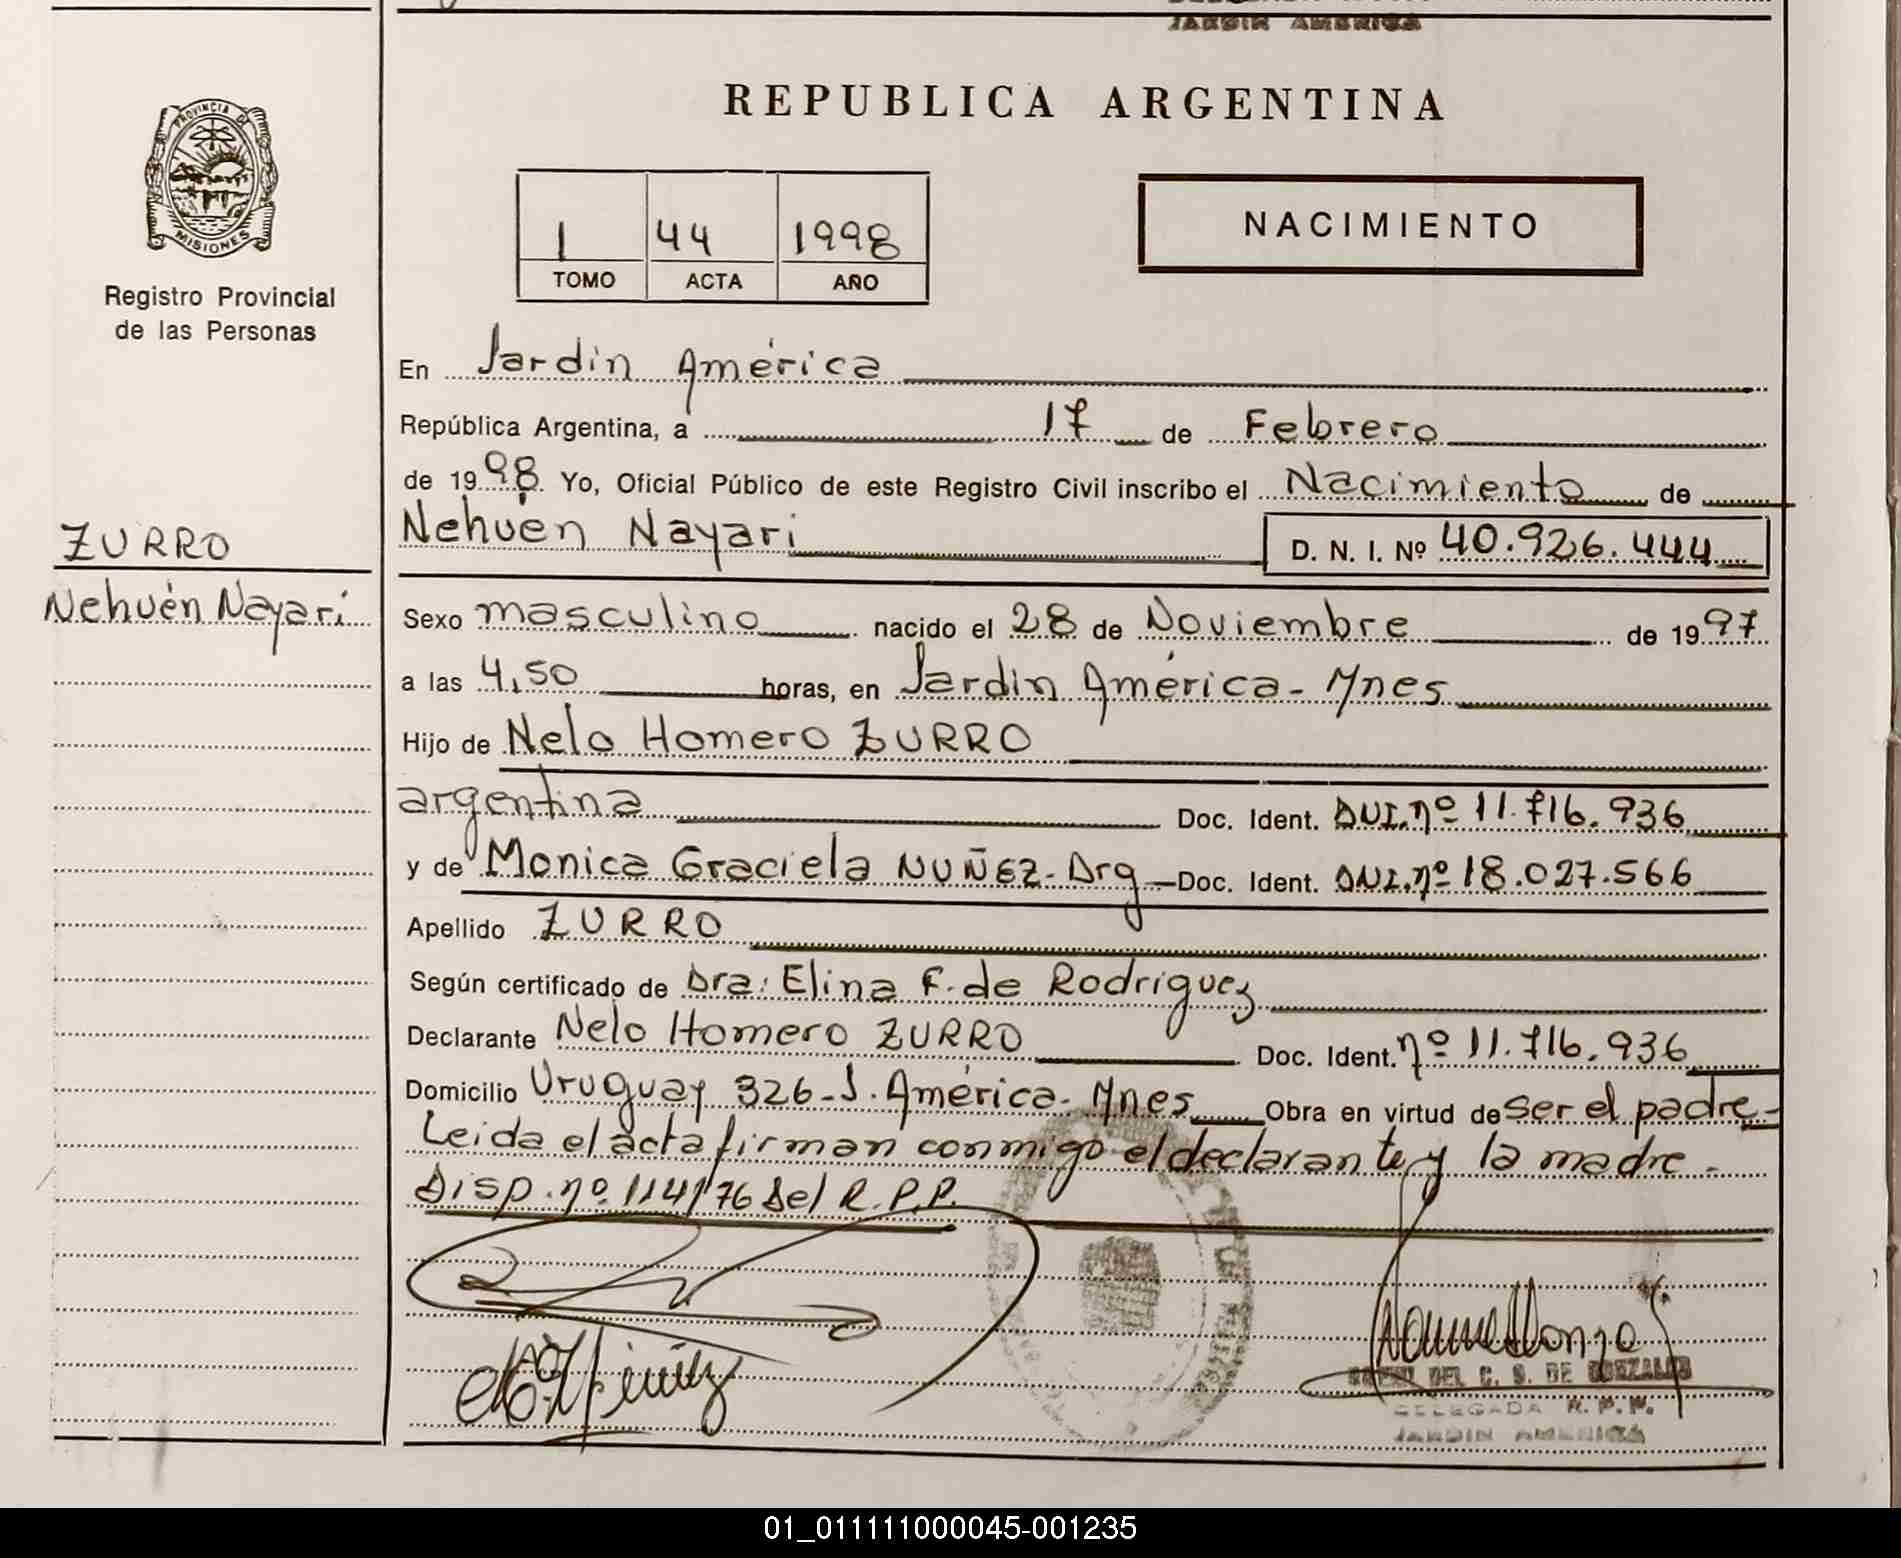 JARDIN AMERICA
REPUBLICA ARGENTINA
PROVINCIA DE
MISIONES
Registro Provincial
de las Personas
1 44 1998
TOMO ACTA AÑO
NACIMIENTO
En Jardín América
República Argentina, a 17 de Febrero
de 1998. Yo, Oficial Público de este Registro Civil inscribo el Nacimiento de
ZURRO
Nehuén Nayarí
Nehuén Nayari D. N. I. Nº 40.926.444
Sexo masculino nacido el 28 de Noviembre de 1997
a las 4,50 horas, en Jardín América - Mnes
Hijo de Nelo Homero ZURRO
argentina Doc. Ident. DNI. nº 11.716.936
y de Monica Graciela NUÑEZ - Arg Doc. Ident. DNI. nº 18.027.566
Apellido ZURRO
Según certificado de Dra: Elina F. de Rodriguez
Declarante Nelo Homero ZURRO Doc. Ident. nº 11.716.936
Domicilio Uruguay 326 - J. América - Mnes Obra en virtud de ser el padre -
Leida el acta firman conmigo el declarante y la madre -
Disp. nº 1141/76 del R.P.P.
DEL C. S. DE GONZALES
DELEGADA R. P. P.
JARDIN AMERICA
01_011111000045-001235